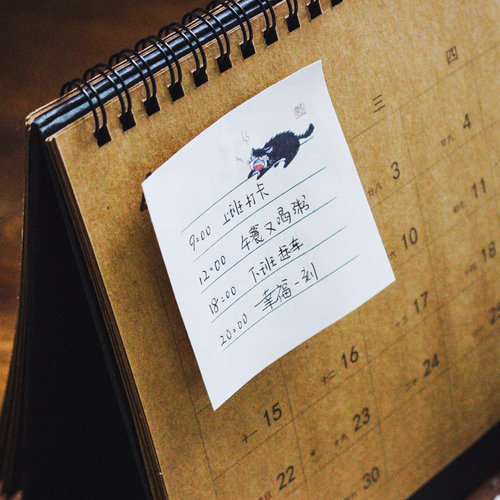 三 四
9:00 上班打卡
12:00 午餐又喝粥
18:00 下班赶车
20:00 幸福一刻
3 4
10 11
15 16 17 18
22 23 24
30